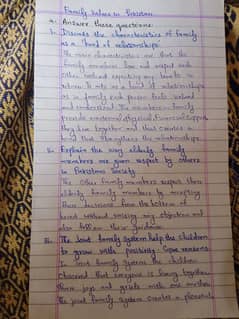 Family Values in Pakistan
Answer these questions:
i. Discuss the characteristics of family
as a bond of relationships.
The main characteristics are that the
family members love and respect each
other without expecting any benefit in
return. It acts as a bond of relationships
as in family each person feels valued
and understood. The members of family
provide emotional, physical & financial support
they live together and that creates a
bond that strengthens the relationships.
ii. Explain the way elderly family
members are given respect by others
in Pakistani Society.
The other family members respect their
elderly family members by accepting
their decisions from the bottom of
heart without raising any objection and
also follow their guidance.
iii. The joint family system help the children
to grow with positivity. Give reasons
In joint family system the children
observed that everyone is living together
share joys and griefs with one another.
The joint family system creates a pleasant